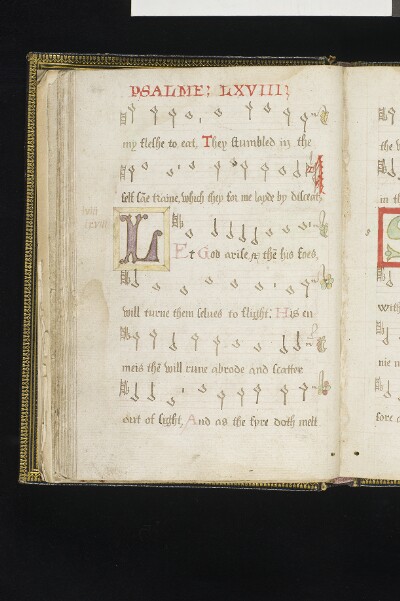 PSALME: LXVIII:
my fleshe to eat, They stumbled in the
self same traine, which they for me layde by disceat,
LEt God arise, & then his foes,
will turne them selues to flight: His en
meis then will rune abrode and scatter
out of sight, And as the fyre doth melt
the
in th
with
nie
fore